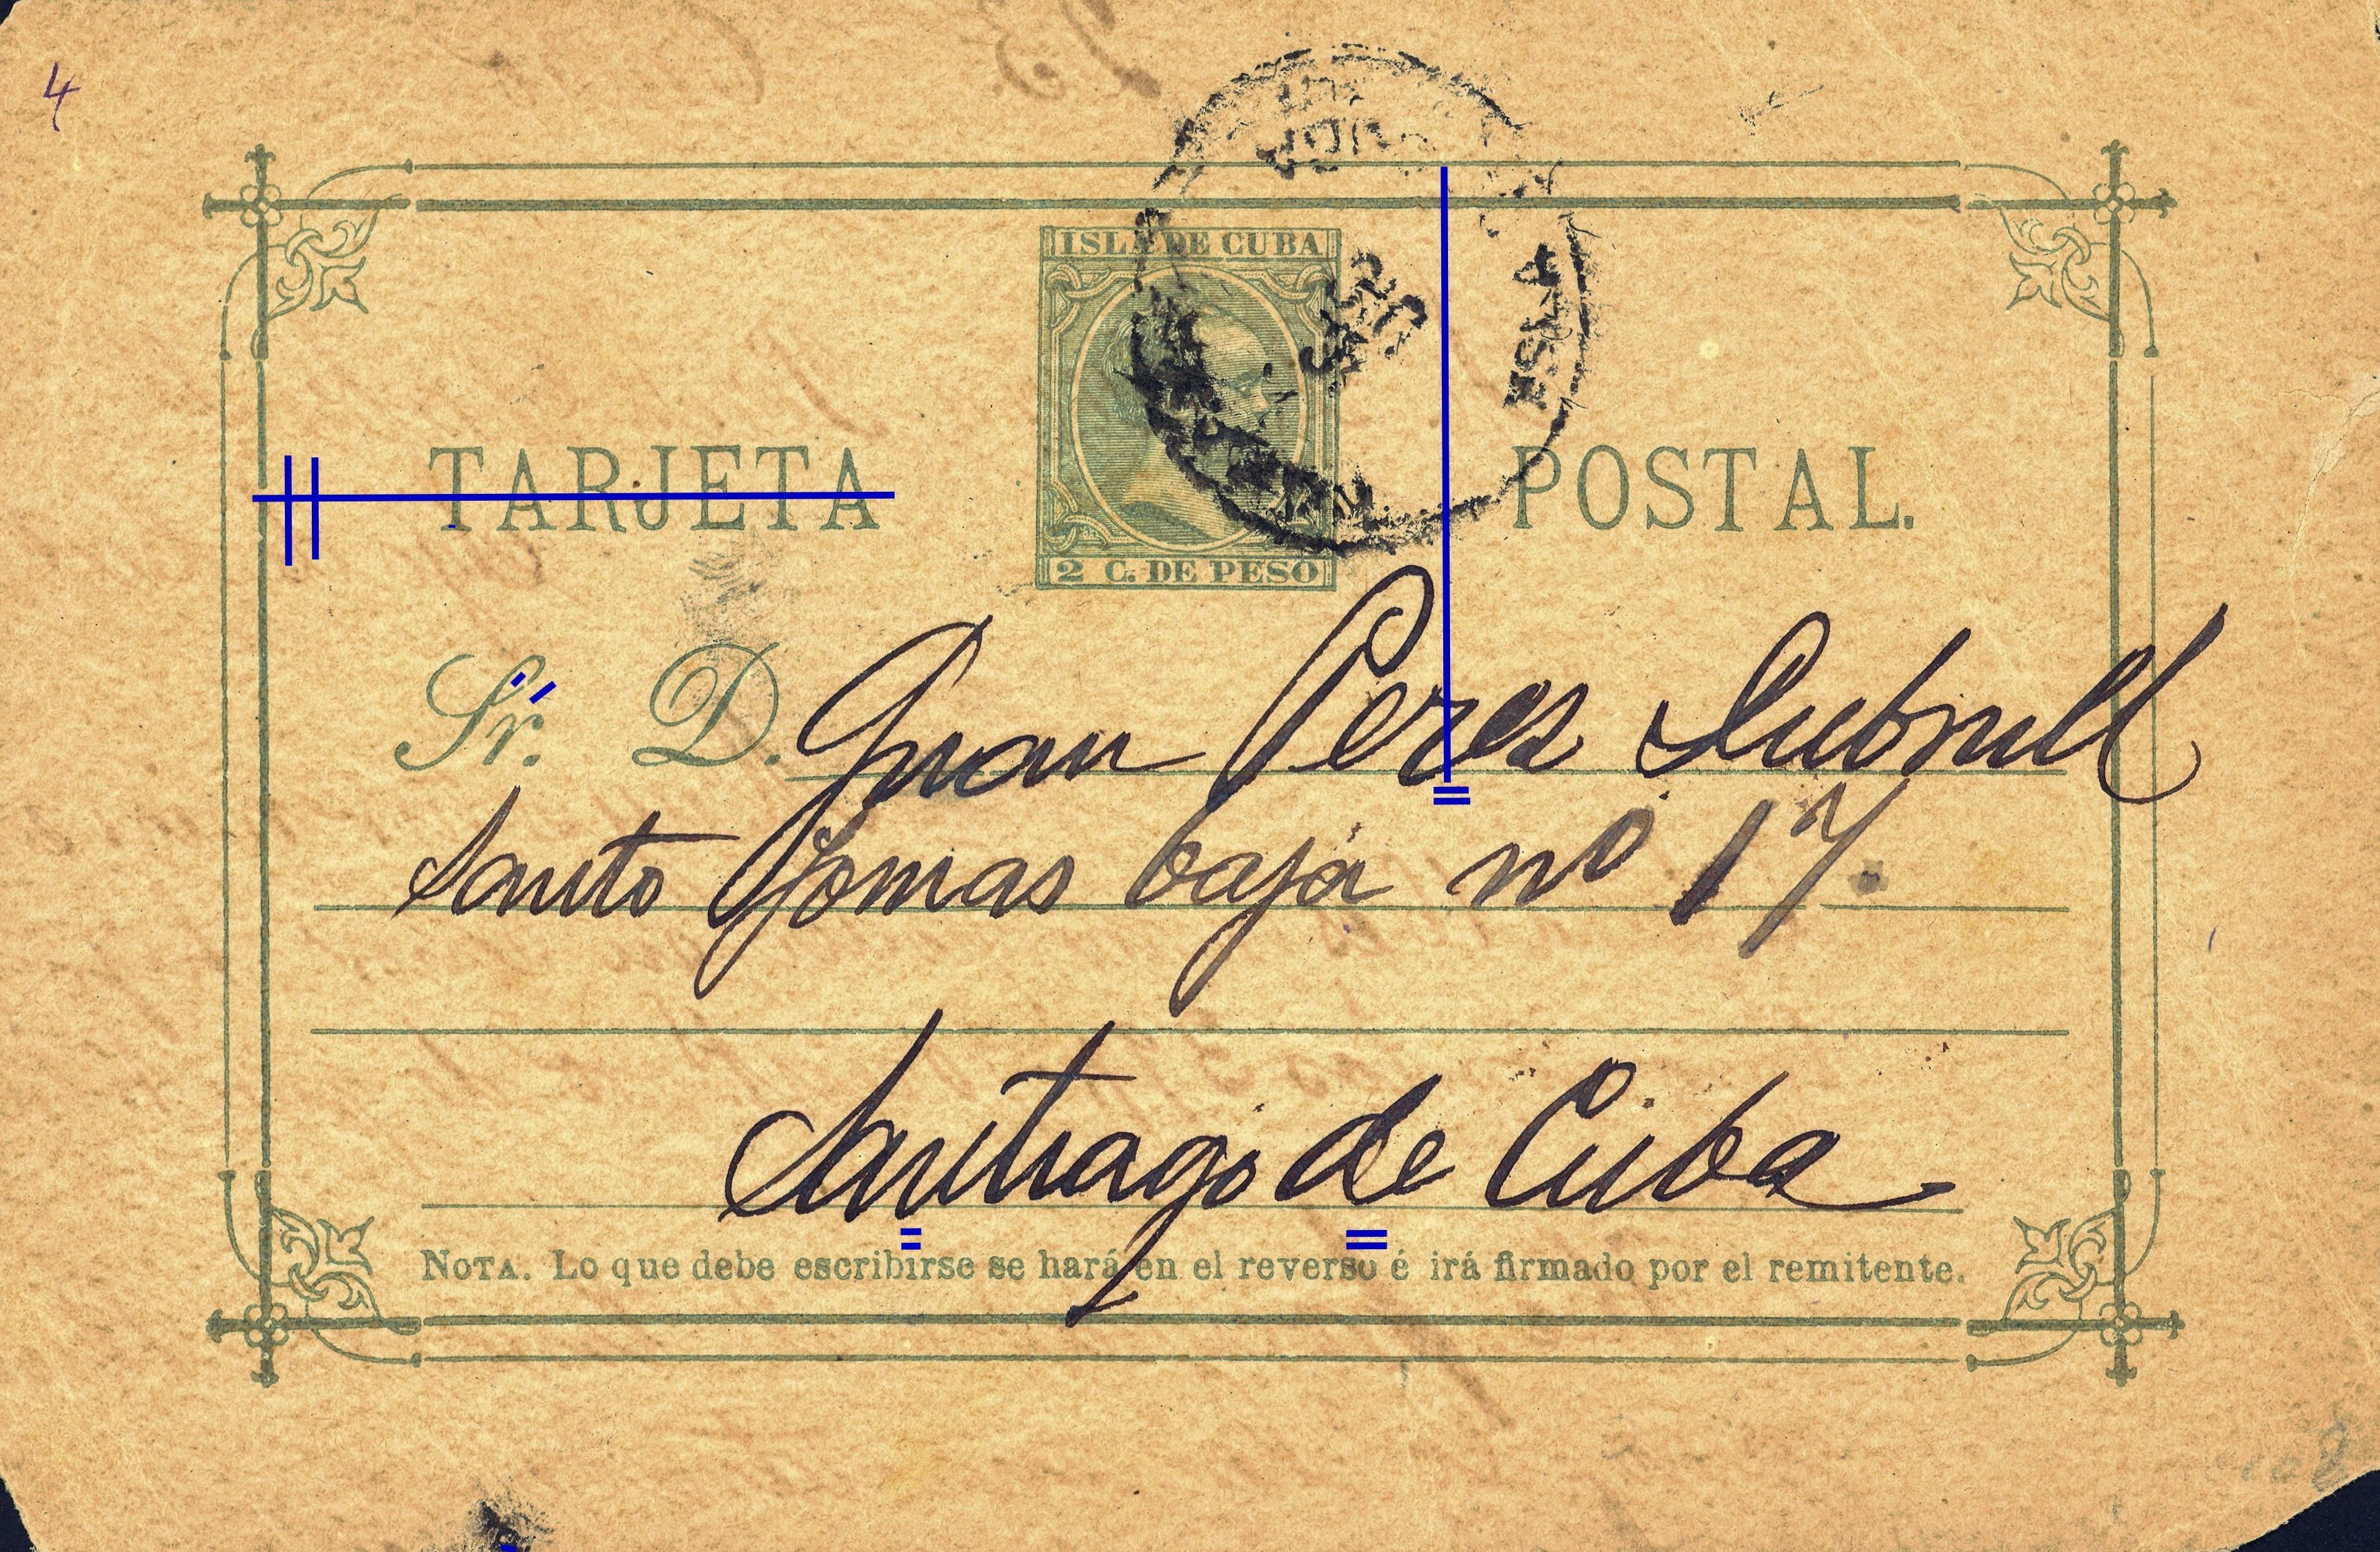 4
ISLA DE CUBA
TARJETA POSTAL.
2 C. DE PESO
Sr. D. Juan Peres Dubrull
Santo Tomas baja nº 17.
Santiago de Cuba
NOTA. Lo que debe escribirse se hará en el reverso é irá firmado por el remitente.